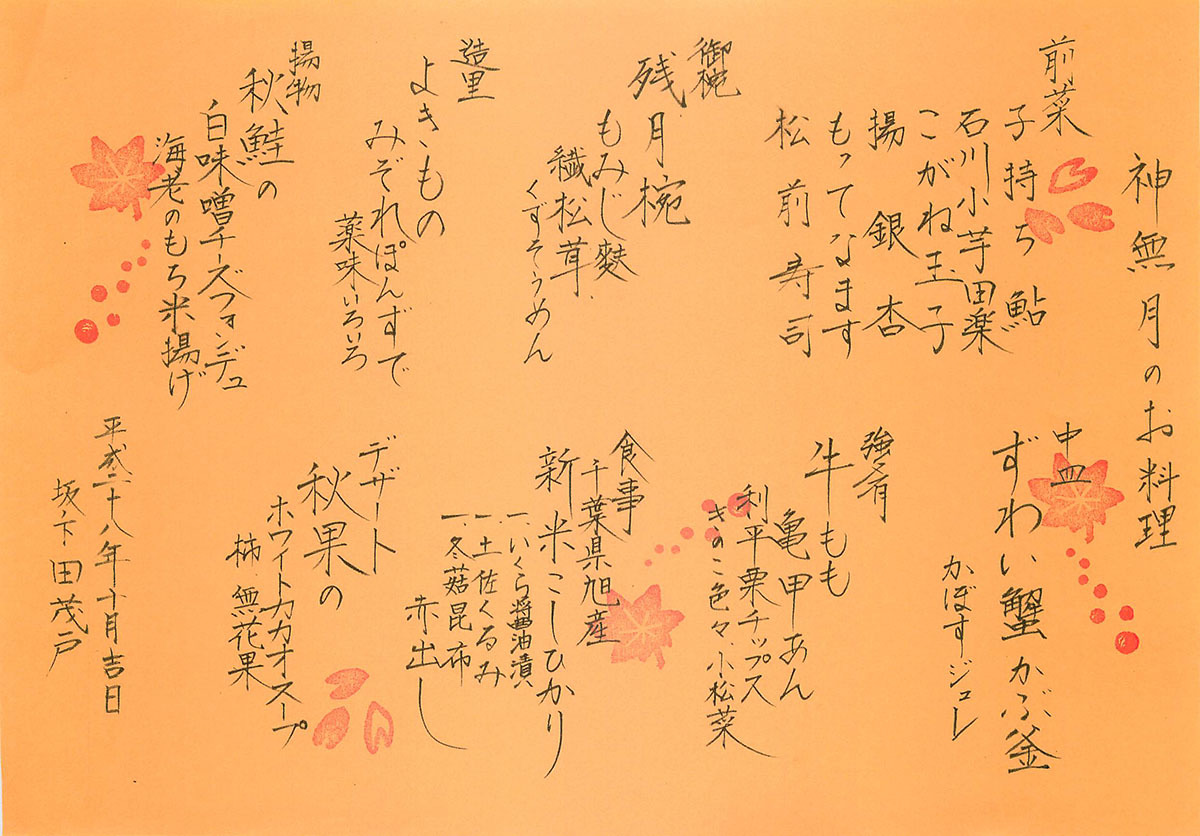 神無月のお料理
前菜
子持ち鮎
石川小芋田楽
こがね玉子
揚銀杏
もってなます
松前寿司
御椀
残月椀
もみじ麩
繊松茸
くずそうめん
造里
よきもの
みぞれぽんずで
薬味いろいろ
揚物
秋鮭の
白味噌チーズフォンデュ
海老のもち米揚げ
中皿
ずわい蟹かぶ釜
かぼすジュレ
強肴
牛もも
亀甲あん
利平栗チップス
きのこ色々、小松菜
食事
千葉県旭産
新米こしひかり
一、いくら醤油漬
一、土佐くるみ
一、冬菇昆布
赤出し
デザート
秋果の
ホワイトカカオスープ
柿、無花果
平成二十八年十月吉日
坂下田茂戸